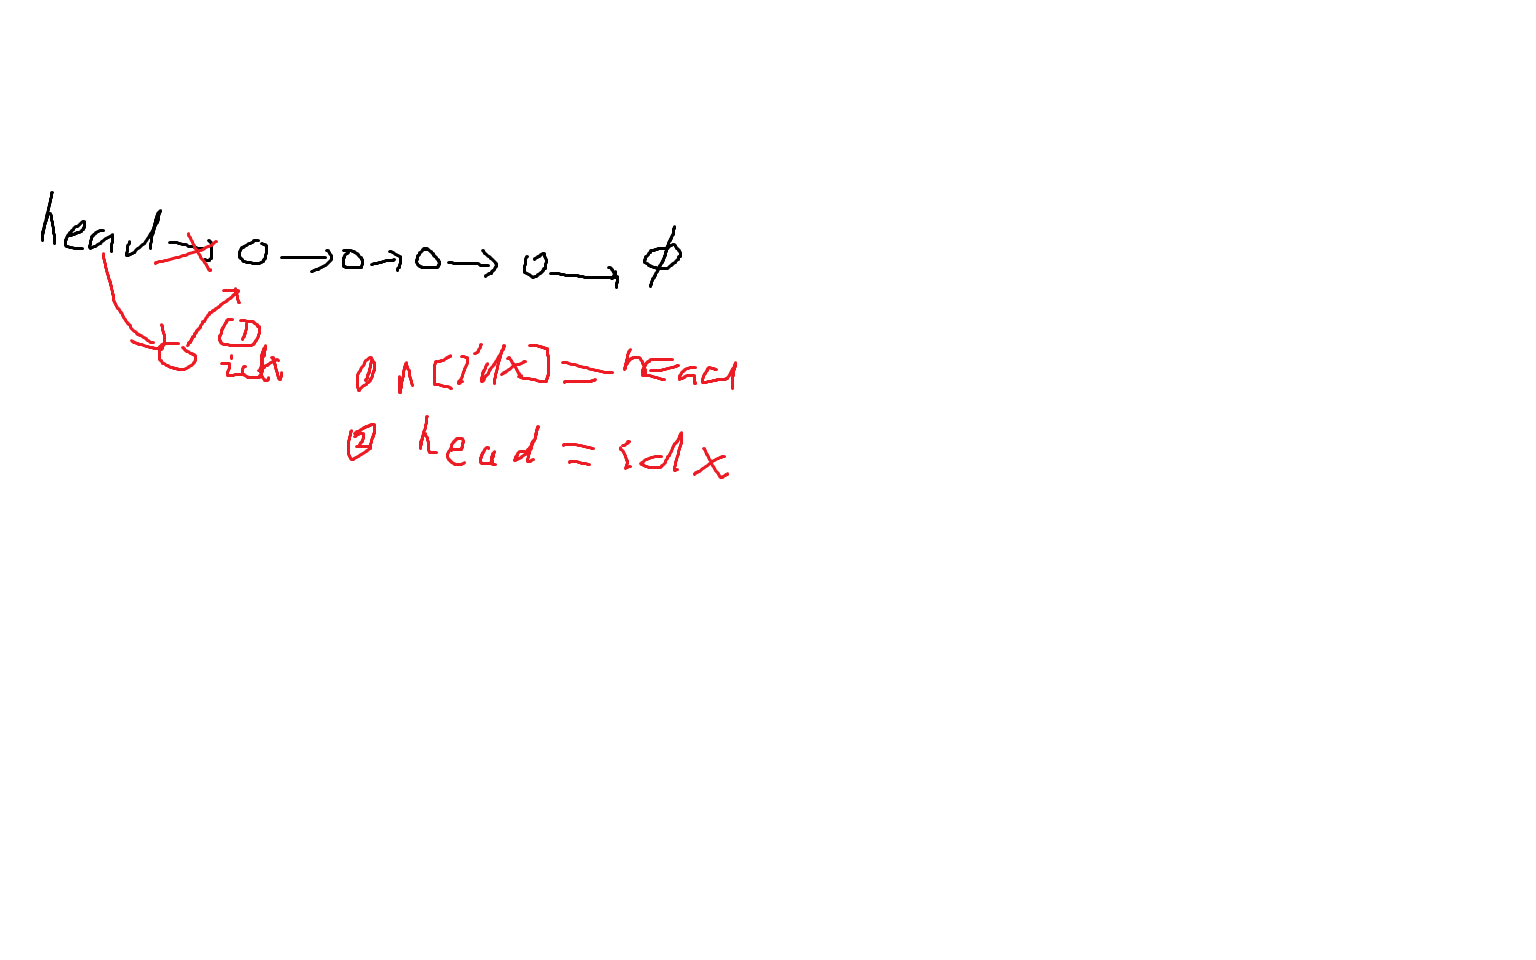 head → o → o → o → o → ϕ
①
① n[idx]=head
② head = idx